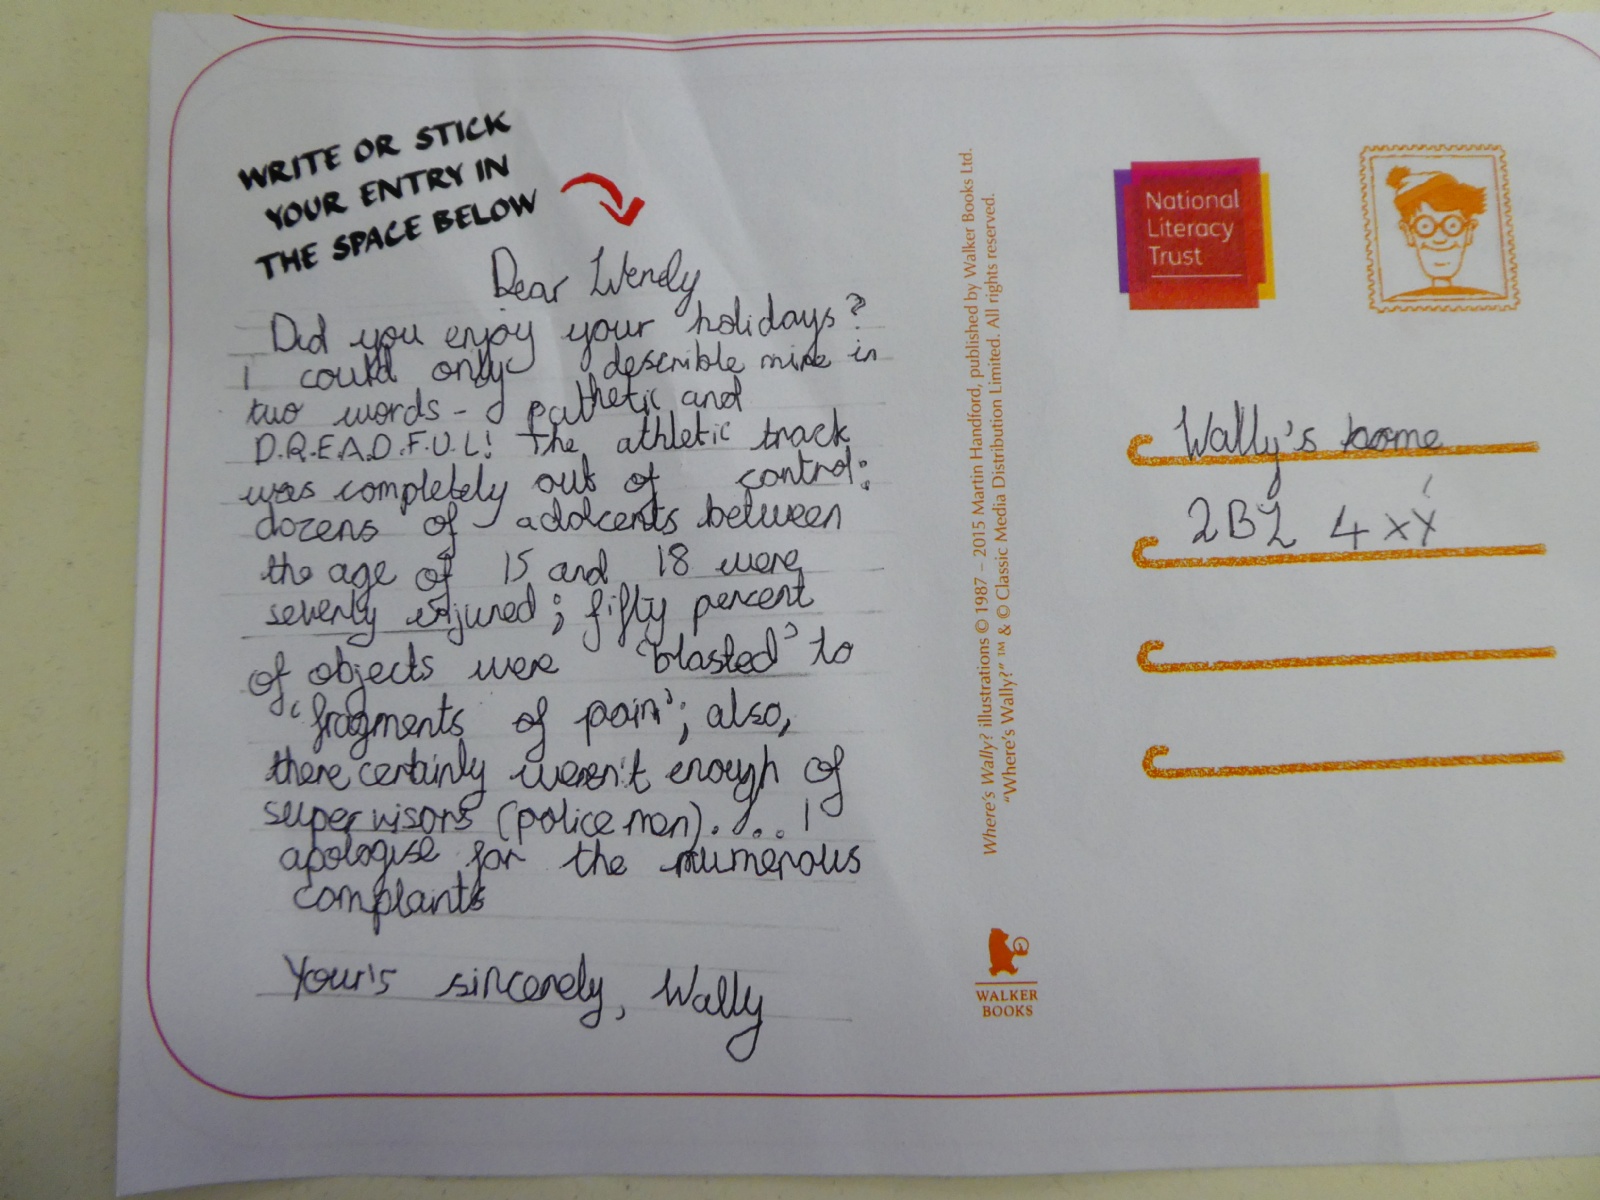 WRITE OR STICK
YOUR ENTRY IN
THE SPACE BELOW
Dear Wendy
Did you enjoy your holidays?
I could only describle mine in
two words - pathetic and
D.R.E.A.D.F.U.L! The athletic track
was completely out of control:
dozens of adolcents between
the age of 15 and 18 were
severly injured; fifty percent
of objects were 'blasted' to
'fragments of pain'; also,
there certainly weren't enough of
supervisors (police men). ... I
apologise for the numerous
complaints
Your's sincerely, Wally
Where's Wally? illustrations © 1987 – 2015 Martin Handford, published by Walker Books Ltd.
"Where's Wally?" ™ & © Classic Media Distribution Limited. All rights reserved.
WALKER
BOOKS
National
Literacy
Trust
Wally's home
2BZ 4XY